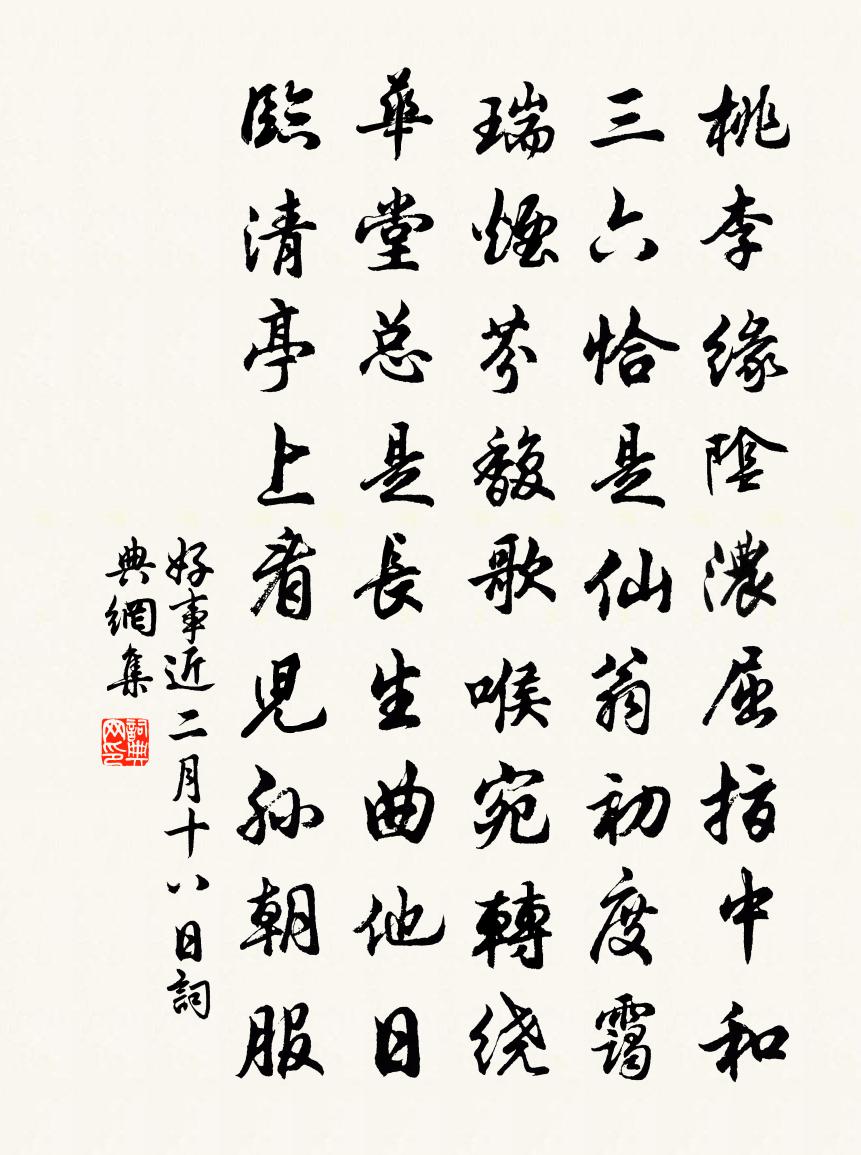 桃李缘陰濃屈指中和
三六恰是仙翁初度靄
瑞煙芬馥歌喉宛轉绕
華堂总是長生曲他日
臨清亭上看児孙朝服
好事近二月十八日詞
典網集
詞典网印